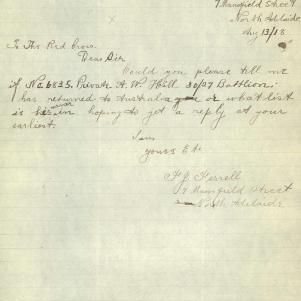 7 Mansfield Street
North Adelaide
Aug 13/18
To The Red Cross
Dear Sir
Would you please tell me
if No 6825. Private A. W. Hill 30/27 Battlion
has returned to Australia or what list
is he in hoping to get a reply at your
earliest.
I am
yours Etc
F J Ferrell
7 Mansfield Street
North Adelaide